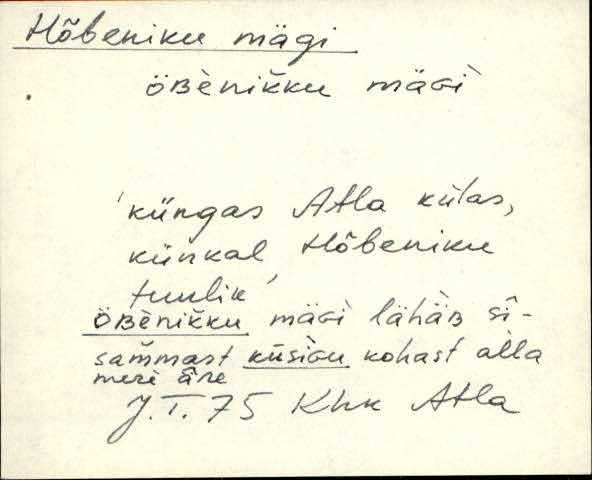 Hõbeniku mägi
öʙèniš̆ku mäɢì
'küngas Atla külas,
künkal Hõbeniku
tuulik'
öʙèniš̆ku mäɢì lähäʙ sî-
sam̆mast küsiɢu kohast alla
merè äre
J.T. 75 Khk Atla